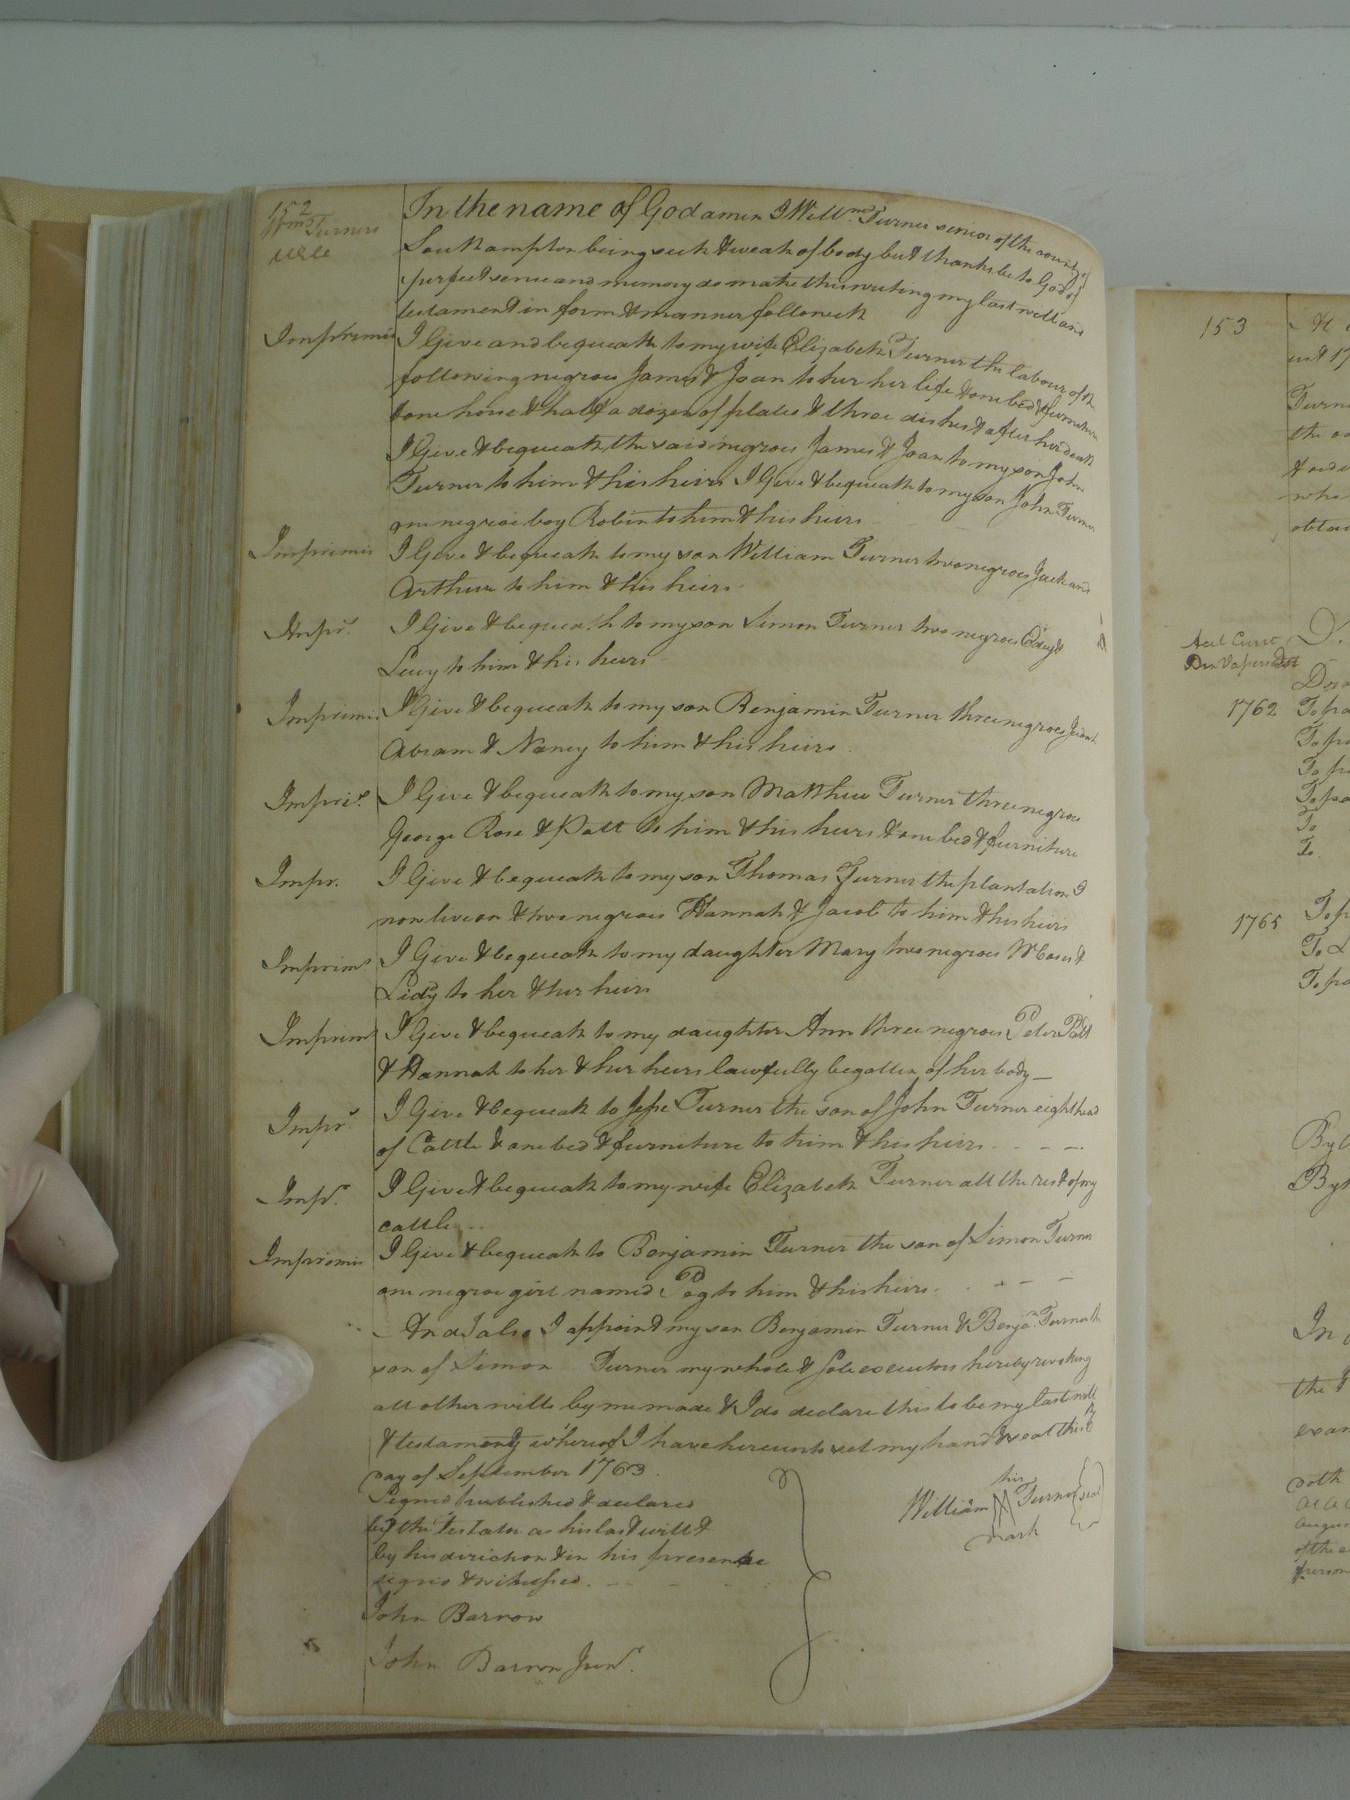 152
Wm Turners
Will
In the name of God amen I Willm Turner senior of the county of
Southampton being sick & weak of body but thanks be to God of
perfect sence and memory do make this writing my last will and
testament in form & manner followith
Imprimis I Give and bequeath to my wife Elizabeth Turner the labour of the
following negroes James & Joan to her her life & one bed & furniture
& one horse & half a dozen of plates & three dishes & after her death
I Give & bequeath the said negroes James & Joan to my son John
Turner to him & his heirs I Give & bequeath to my son John Turner
one negroe boy Robin to him & his heirs
Imprimis I Give & bequeath to my son William Turner two negroes Jack and
Arthur to him & his heirs
Impr. I Give & bequeath to my son Simon Turner two negroes &
Lucy to him & his heirs
Imprimis I Give & bequeath to my son Benjamin Turner three negroes
Abram & Nancy to him & his heirs
Impris. I Give & bequeath to my son Matthew Turner three negroes
George Rose & Patt to him & his heirs & one bed & furniture
Impr. I Give & bequeath to my son Thomas Turner the plantation I
now live on & two negroes Hannah & Jacob to him & his heirs
Imprims I Give & bequeath to my daughter Mary two negroes Moses &
Lidy to her & her heirs
Imprims I Give & bequeath to my daughter Ann three negroes Peter Patt
& Hannah to her & her heirs lawfully begotten of her body
Impr. I Give & bequeath to Jesse Turner the son of John Turner eight head
of Cattle & one bed & furniture to him & his heirs
Impr. I Give & bequeath to my wife Elizabeth Turner all the rest of my
cattle
Imprimis I Give & bequeath to Benjamin Turner the son of Simon Turner
one negroe girl named Peg to him & his heirs
And I also I appoint my son Benjamin Turner & Benja. Turner the
son of Simon Turner my whole & sole executors hereby revoking
all other wills by me made & I do declare this to be my last will
& testament whereof I have hereunto set my hand & seal this
day of September 1763
Signed published & declared
by the Testator as his last will &
by his direction & in his presence
signed & witnessed
his
William M Turner seal
mark
John Barrow
John Barrow Junr.
153
Acct Curst
1762
To
To
1765
In
the